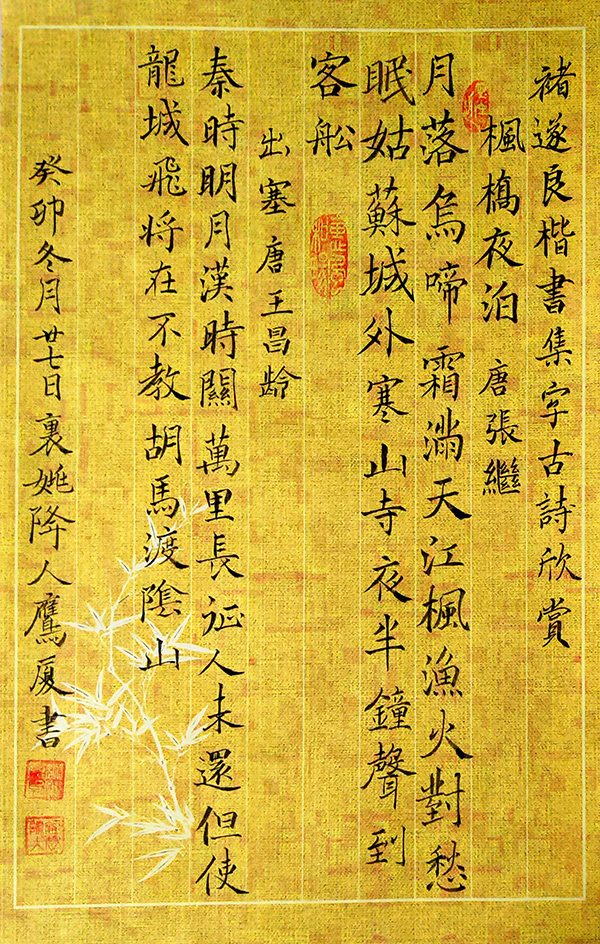 褚遂良楷書集字古詩欣賞
楓橋夜泊 唐張繼
月落烏啼霜滿天江楓漁火對愁
眠姑蘇城外寒山寺夜半鐘聲到
客船
出塞唐王昌齡
秦時明月漢時關萬里長征人未還但使
龍城飛將在不教胡馬渡陰山
癸卯冬月廿七日裏姚降人鷹廈書